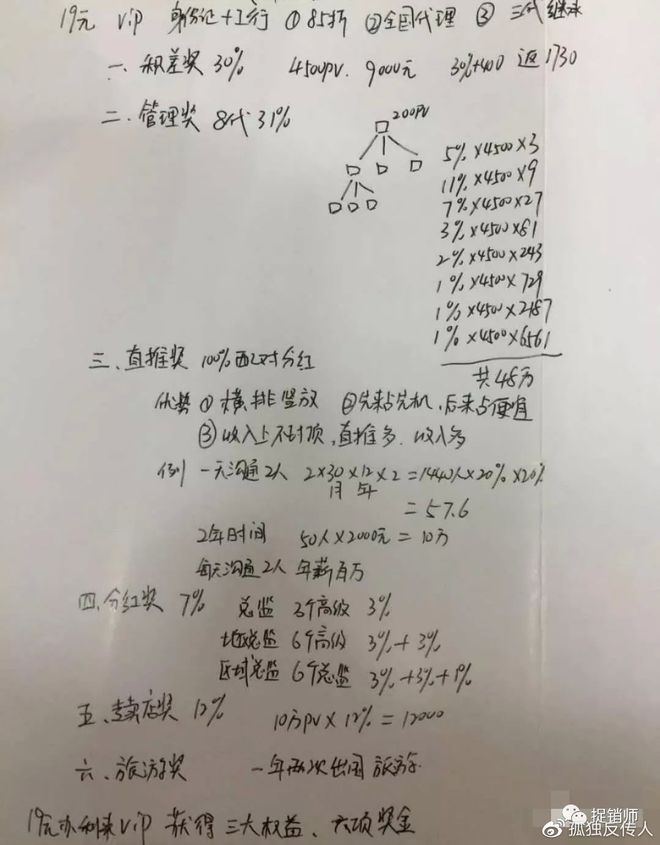 19元 vip 身份证+工行 ①85折 ②全国代理 ③ 三代继承
一、积差奖 30% 4500pv. 9000元 30%+400 返1730
二、管理奖 8代31%
200PV
5%×4500×3
11%×4500×9
7%×4500×27
3%×4500×81
2%×4500×243
1%×4500×729
1%×4500×2187
1%×4500×6561
共48万
三、直推奖 100%配对分红
优势 ①横排竖放 ②先来占先机,后来占便宜
③收入上不封顶,直推多.收入多
例 一天沟通2人 2×30×12×2=1440人×20%×20%
月 年
=57.6
2年时间 50人×2000元=10万
每天沟通2人 年薪百万
四、分红奖 7% 总监 3个高级 3%
地区总监 6个高级 3%+3%
区域总监 6个总监 3%+3%+1%
五、专卖店奖 12% 10万PV×12%=12000
六、旅游奖 一年两次出国旅游
19元办利来vip 获得三大权益、六项奖金
捉销师
@孤独反传人